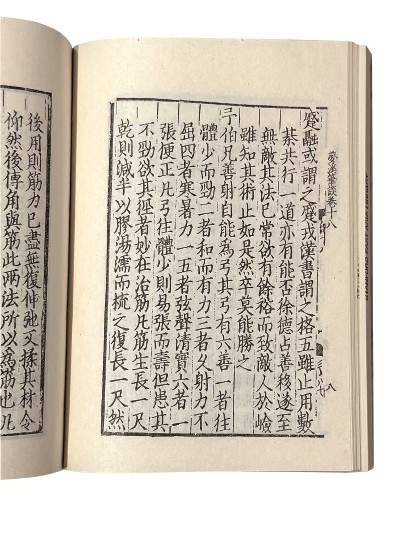 夢溪筆談卷十八
蹙融或謂之蹙戎漢書謂之格五雖止用數
棊共行一道亦有能否徐德占善移遂至
無敵其法已常欲有餘裕而致敵人於嶮
雖知其術止如是然卒莫能勝之
予伯兄善射自能爲弓其弓有六善一者往
體少而勁二者和而有力三者久射力不
屈四者寒暑力一五者弦聲清實六者一
張便正凡弓往體少則易張而壽但患其
不勁欲其勁者妙在治筋凡筋生長一尺
乾則減半以膠湯濡而梳之復長一尺然
後用則筋力已盡無復伸弛又揉其材令
仰然後傅角與筋此兩法所以爲筋也凡